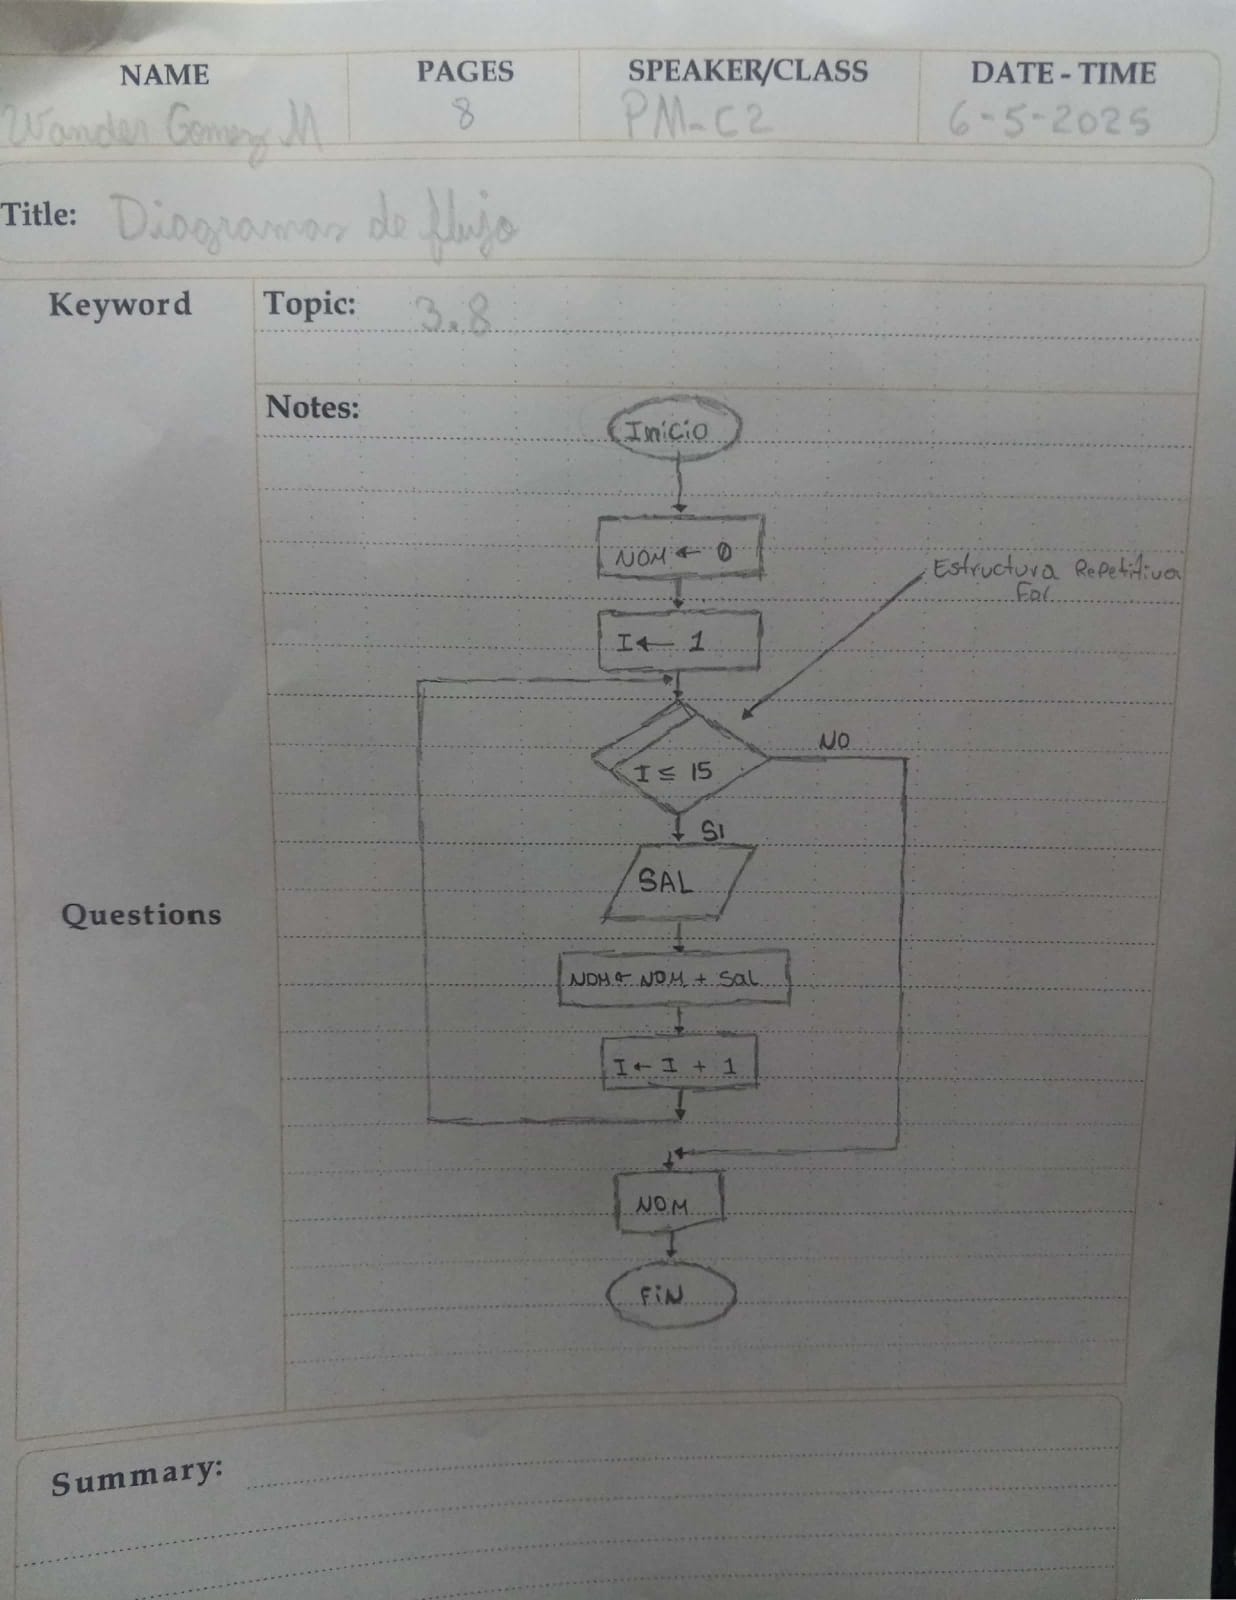 NAME PAGES SPEAKER/CLASS DATE - TIME
Wander Gomez M 8 PM-C2 6-5-2025
Title: Diagramas de flujo
Keyword Topic: 3.8
Notes:
Inicio
NOM ← 0
Estructura Repetitiva
For
I ← 1
NO
I ≤ 15
SI
SAL
Questions
NOM ← NOM + Sal
I ← I + 1
NOM
FiN
Summary: